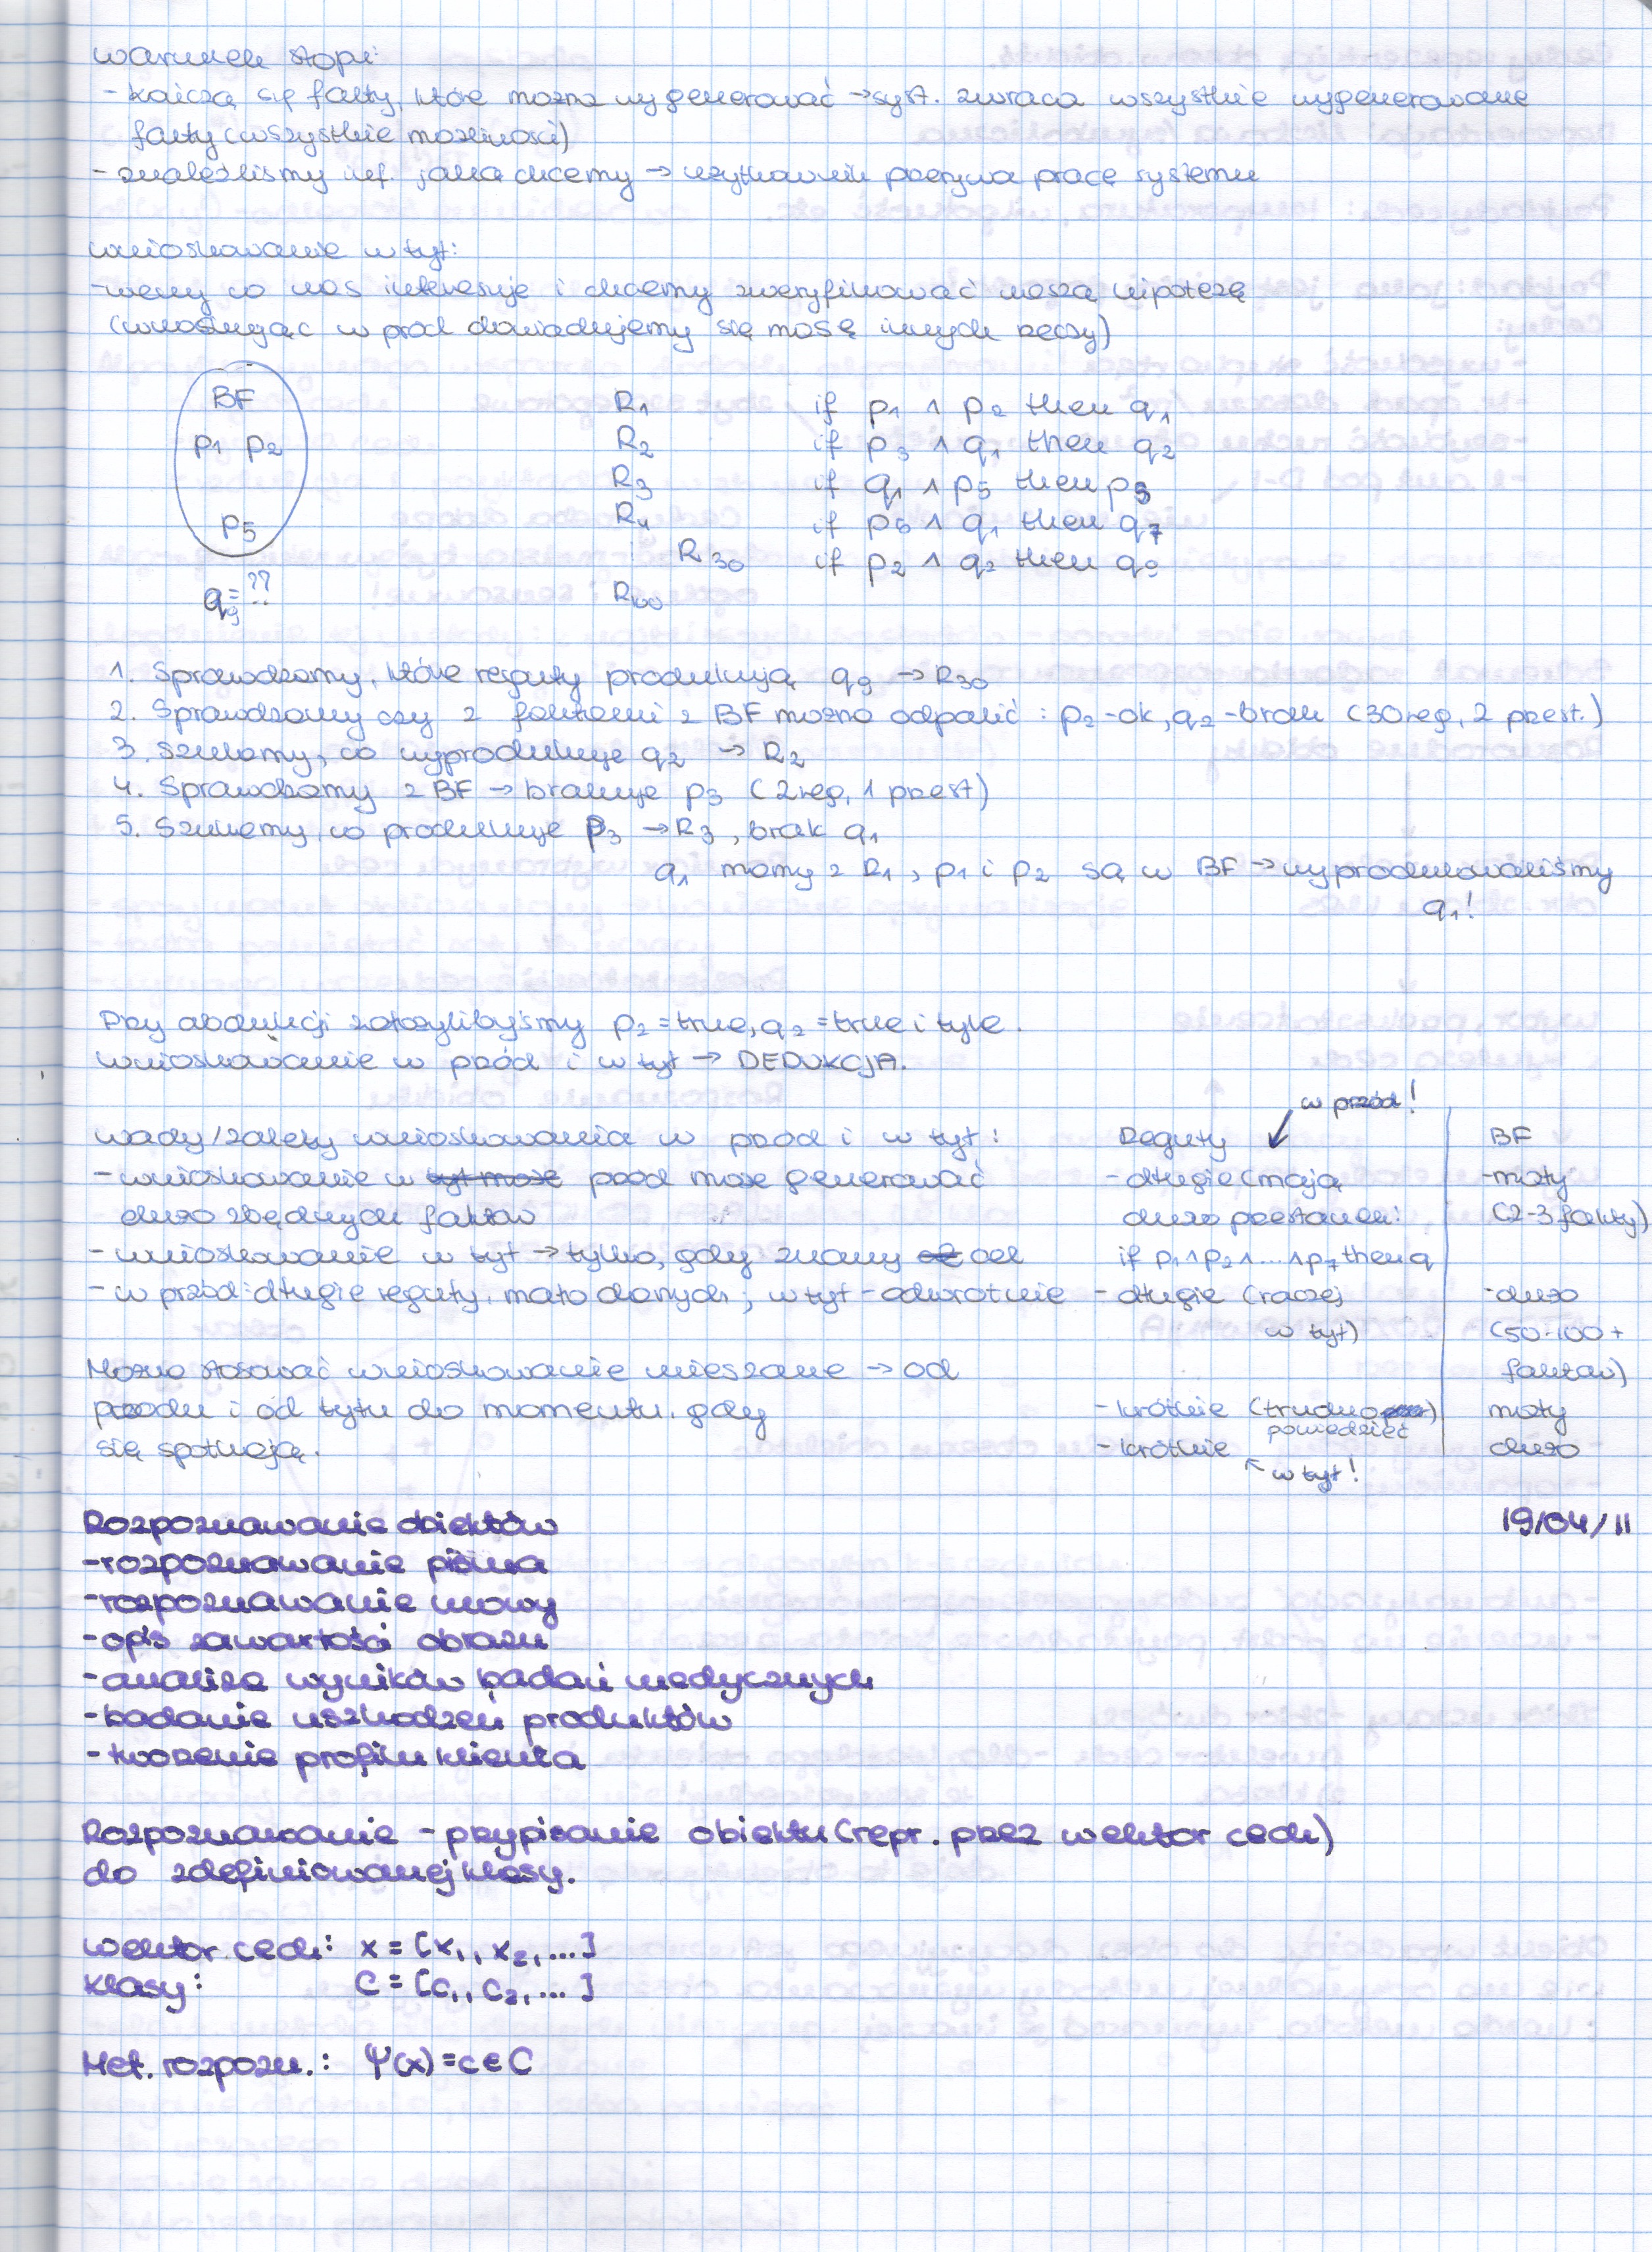 warunek stopu:
- kończą się fakty, które można wygenerować → syst. zwraca wszystkie wygenerowane
fakty (wszystkie możliwości)
- znaleźliśmy inf. jaką chcemy → użytkownik przerywa pracę systemu
wnioskowanie w tył:
- wemy co nas interesuje i chcemy zweryfikować naszą hipotezę
(wnioskując w przód dowiadujemy się masę innych rzeczy)
BF
p1 p2
p5
q9 = ??
R1 if p1 ∧ p2 then q1
R2 if p3 ∧ q1 then q2
R3 if q1 ∧ p5 then p3
R4 if p6 ∧ q1 then q7
R30 if p2 ∧ q2 then q9
R100
1. Sprawdzamy, które reguły produkują q9 → R30
2. Sprawdzamy czy z faktami z BF można odpalić: p2-ok, q2-brak (30 reg, 2 przest.)
3. Szukamy, co wyprodukuje q2 → R2
4. Sprawdzamy z BF → brakuje p3 (2 reg, 1 przest)
5. Szukamy, co produkuje p3 → R3, brak q1
q1 mamy z R1, p1 i p2 są w BF → wyprodukowaliśmy
q1!
Przy abdukcji założylibyśmy p2 = true, q2 = true i tyle.
wnioskowanie w przód i w tył → DEDUKCJA.
wady/zalety wnioskowania w przód i w tył:
- wnioskowanie w tył może przód może generować
dużo zbędnych faktów
- wnioskowanie w tył → tylko, gdy znamy cel
- w przód: długie reguły, mało danych; w tył - odwrotnie
Można stosować wnioskowanie mieszane → od
przodu i od tyłu do momentu, gdy
się spotkają.
w przód!
Reguły BF
- długie (mają -mały
dużo przesłanek: (2-3 fakty)
if p1∧p2∧...∧p7 then q
- długie (raczej -dużo
w tył) (50-100+
faktów)
- krótkie (trudno powiedzieć) mały
- krótkie dużo
w tył!
Rozpoznawanie obiektów 19/04/11
-rozpoznawanie pisma
-rozpoznawanie mowy
-opis zawartości obrazu
-analiza wyników badań medycznych
-badanie uszkodzeń produktów
-tworzenie profilu klienta
Rozpoznawanie - przypisanie obiektu (repr. przez wektor cech)
do zdefiniowanej klasy.
wektor cech: x = [x1, x2, ...]
klasy: C = [c1, c2, ...]
Met. rozpozn.: Ψ(x) = c ∈ C